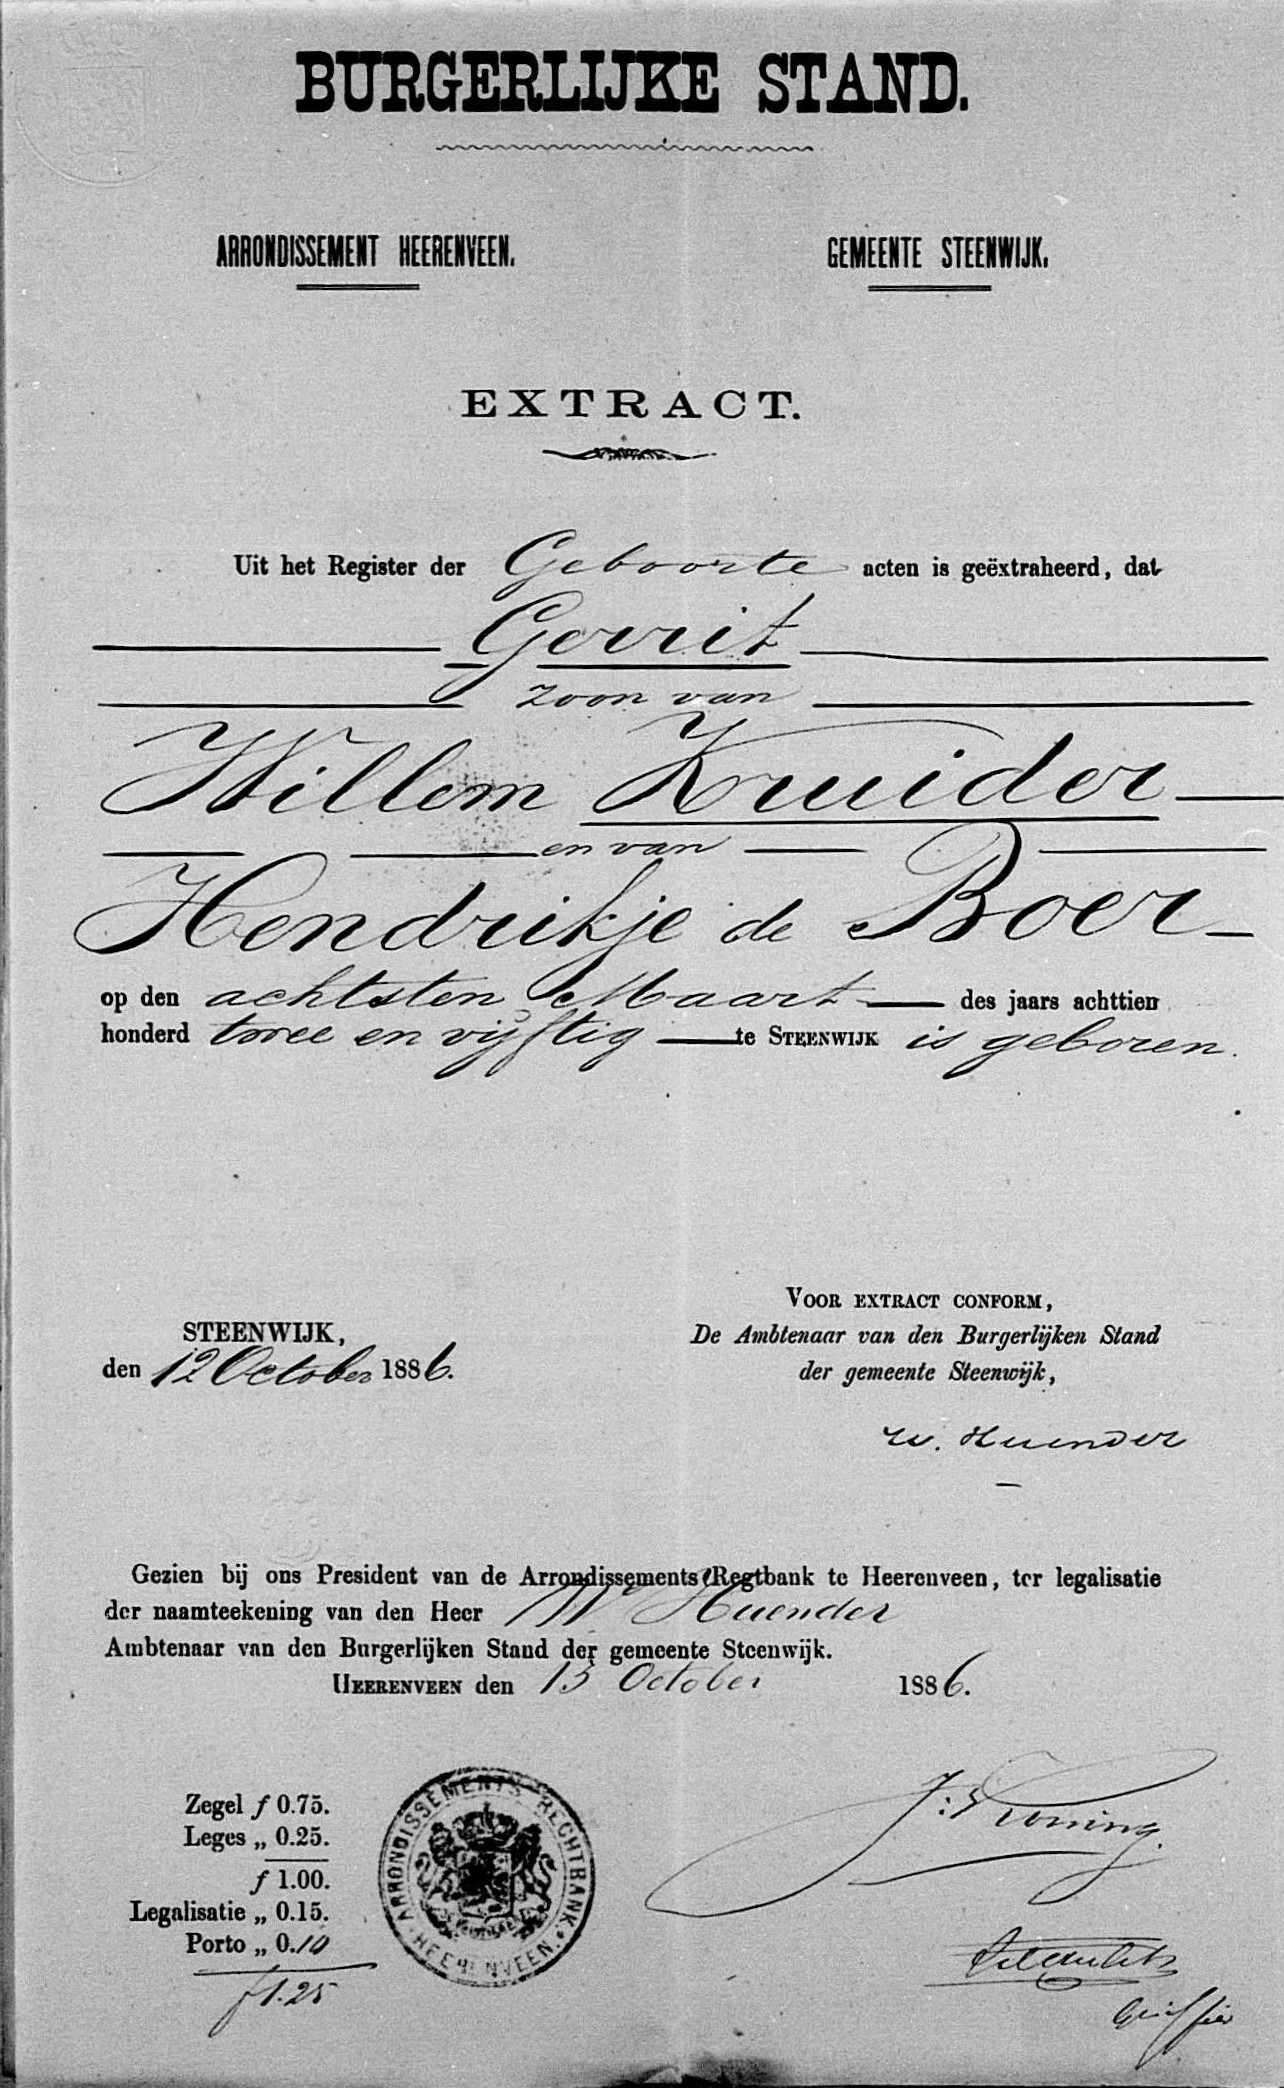 BURGERLIJKE STAND.
ARRONDISSEMENT HEERENVEEN. GEMEENTE STEENWIJK.
EXTRACT.
Uit het Register der Geboorte acten is geëxtraheerd, dat
Gerrit
zoon van
Willem Kruider
en van
Hendrikje de Boer
op den achtsten Maart des jaars achttien
honderd twee en vijftig te STEENWIJK is geboren.
VOOR EXTRACT CONFORM,
STEENWIJK, De Ambtenaar van den Burgerlijken Stand
den 12 October 1886. der gemeente Steenwijk,
W. Huender
Gezien bij ons President van de Arrondissements Regtbank te Heerenveen, ter legalisatie
der naamteekening van den Heer W Huender
Ambtenaar van den Burgerlijken Stand der gemeente Steenwijk.
HEERENVEEN den 13 October 1886.
Zegel f 0.75.
Leges „ 0.25.
f 1.00.
Legalisatie „ 0.15.
Porto „ 0.10
f 1.25
ARRONDISSEMENTS RECHTBANK
HEERENVEEN.
Griffier